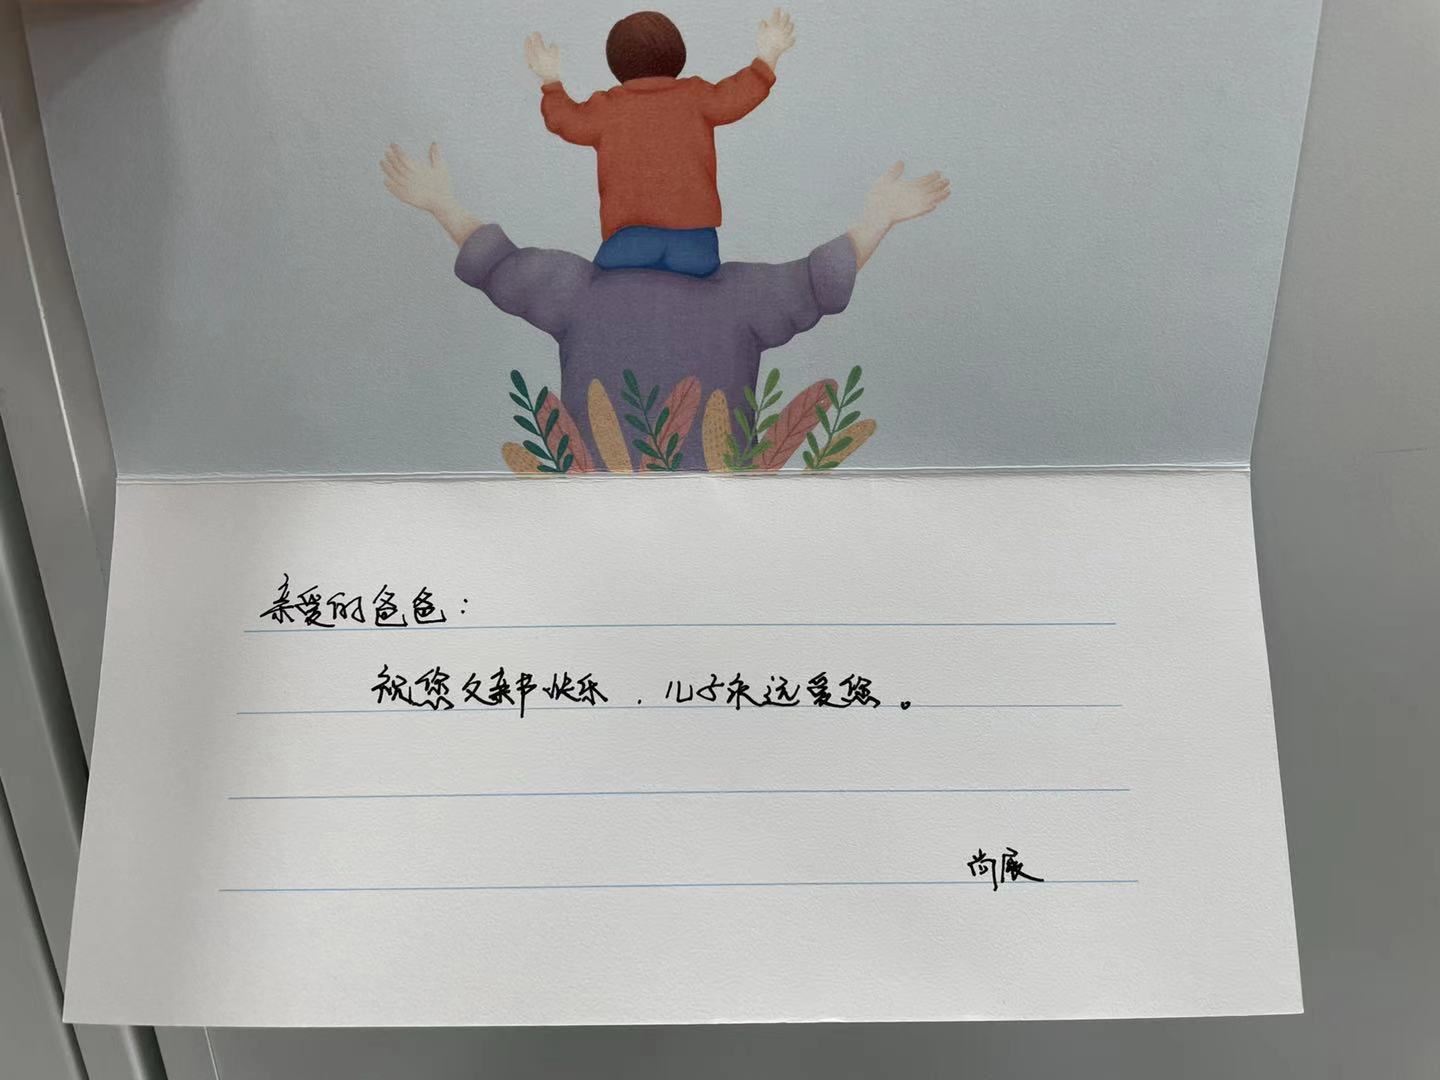 亲爱的爸爸：
祝您父亲节快乐，儿子永远爱您。
尚展